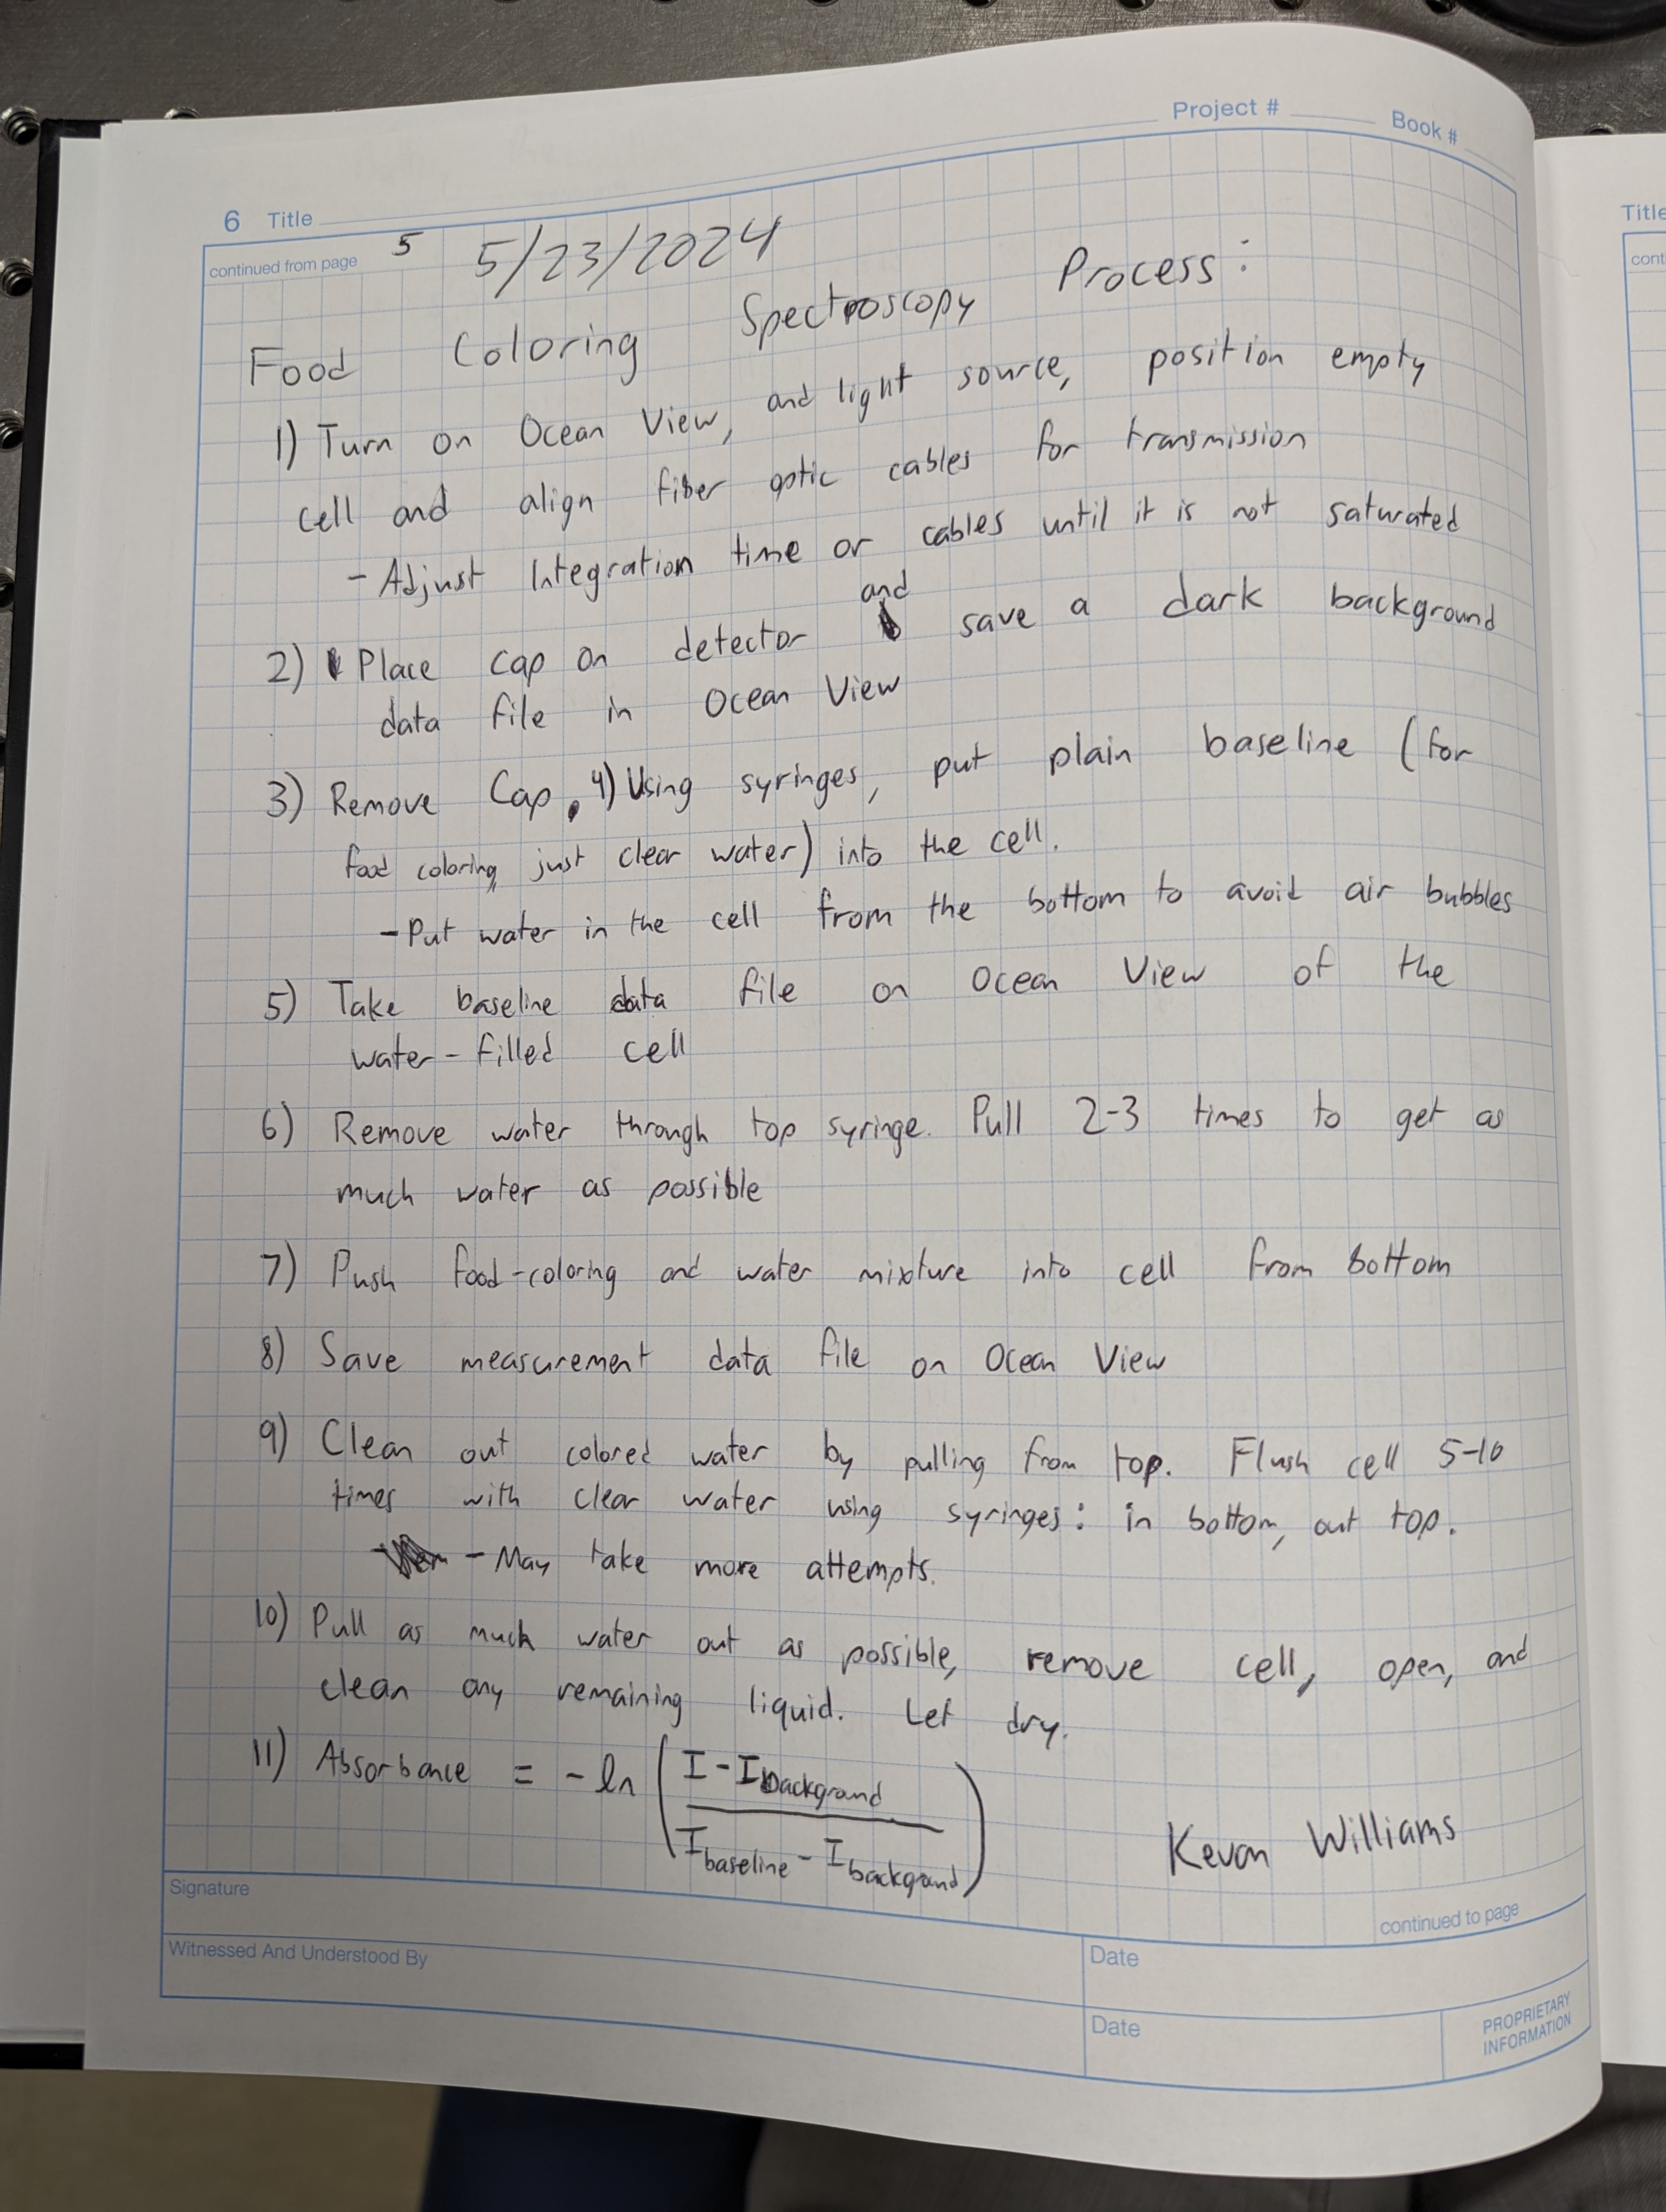 Project # Book #
6 Title
continued from page 5 5/23/2024
Food Coloring Spectroscopy Process:
1) Turn on Ocean View, and light source, position empty
cell and align fiber optic cables for transmission
- Adjust Integration time or cables until it is not saturated
and
2) Place cap on detector save a dark background
data file in Ocean View
3) Remove Cap. 4) Using syringes, put plain baseline (for
food coloring, just clear water) into the cell.
- Put water in the cell from the bottom to avoid air bubbles
5) Take baseline data file on Ocean View of the
water-filled cell
6) Remove water through top syringe. Pull 2-3 times to get as
much water as possible
7) Push food-coloring and water mixture into cell from bottom
8) Save measurement data file on Ocean View
9) Clean out colored water by pulling from top. Flush cell 5-10
times with clear water using syringes: in bottom, out top.
- May take more attempts.
10) Pull as much water out as possible, remove cell, open, and
clean any remaining liquid. Let dry.
11) Absorbance = -ln (I - Ibackground / Ibaseline - Ibackground)
Kevon Williams
Signature
continued to page
Witnessed And Understood By
Date
Date
PROPRIETARY
INFORMATION
Title
cont